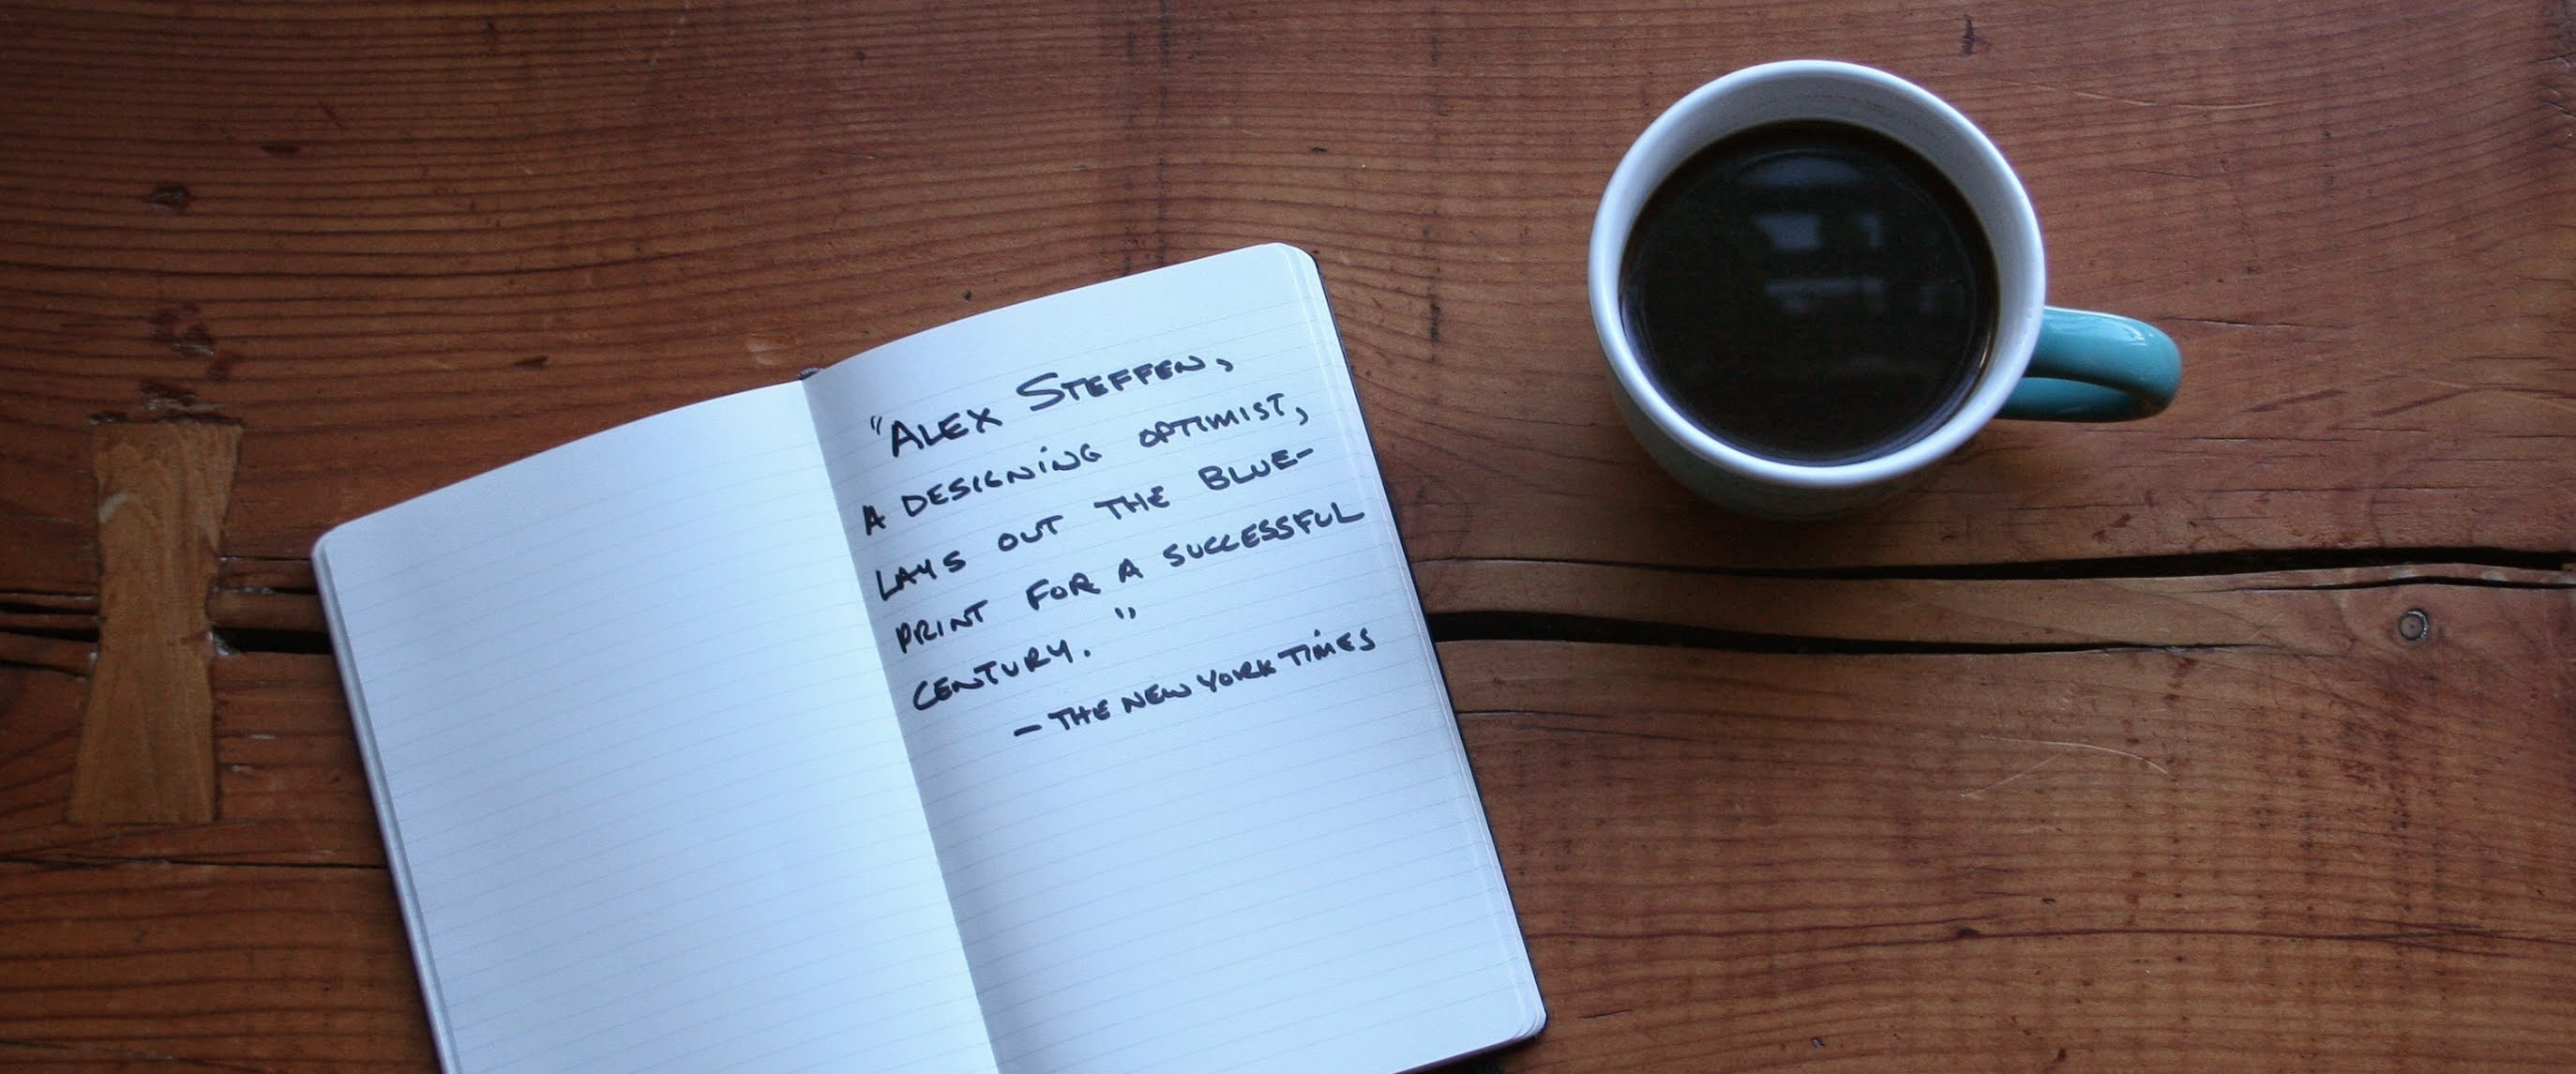 "ALEX STEFFEN,
A DESIGNING OPTIMIST,
LAYS OUT THE BLUE-
PRINT FOR A SUCCESSFUL
CENTURY."
- THE NEW YORK TIMES